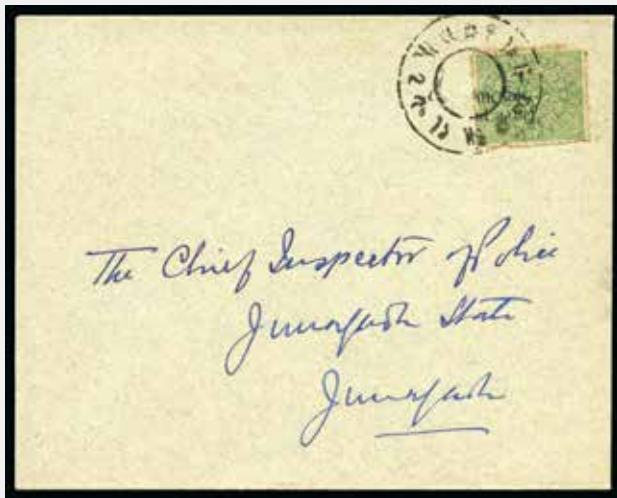 The Chief Inspector of Police
Junagadh State
Junagadh